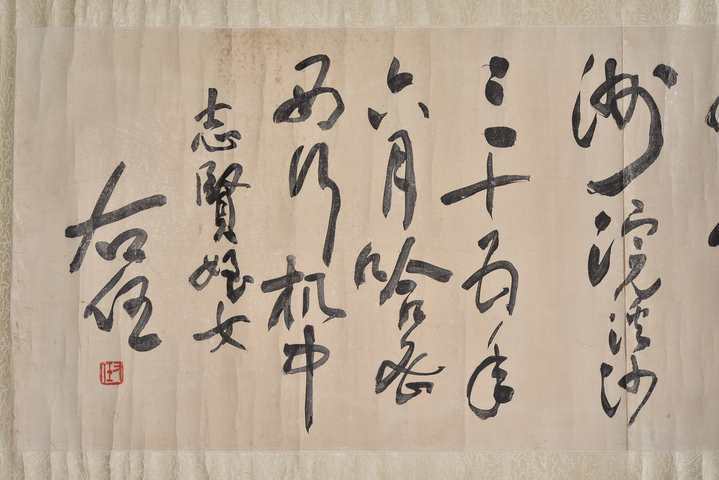 洲浣溪沙
三十五年
六月哈密
西行机中
志賢姪女
右任